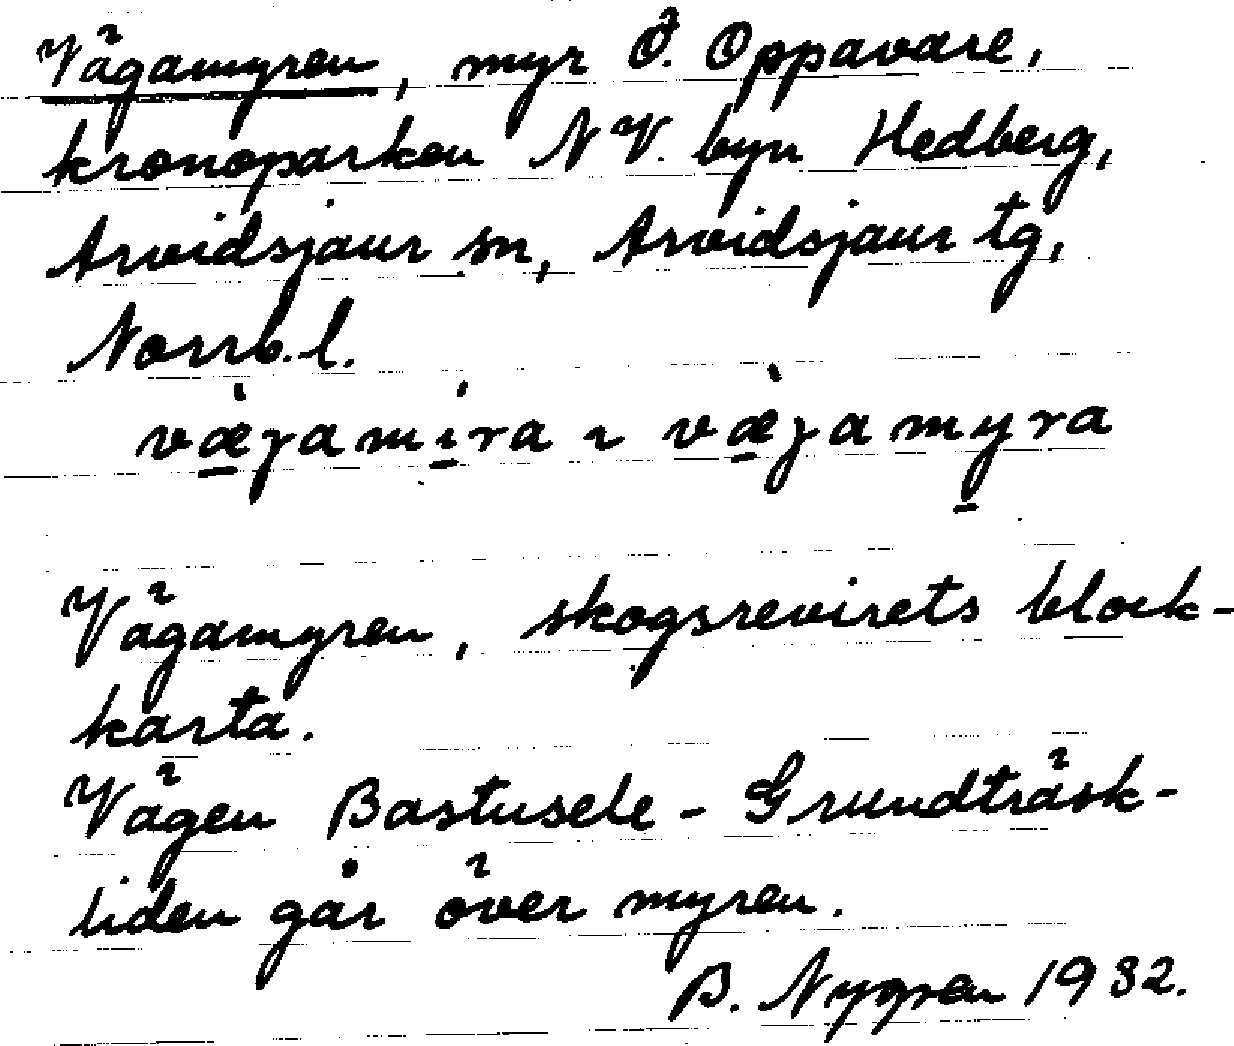 Vägamyren, myr Ö. Oppavare,
kronoparken NV. byn Hedberg,
Arvidsjaur sn, Arvidsjaur tg,
Norrb.l.
væ̀gamíra ~ væ̀gamyra
Vägamyren, skogsrevirets block-
karta.
Vägen Bastusele - Grundträsk-
liden går över myren.
B. Nygren 1932.